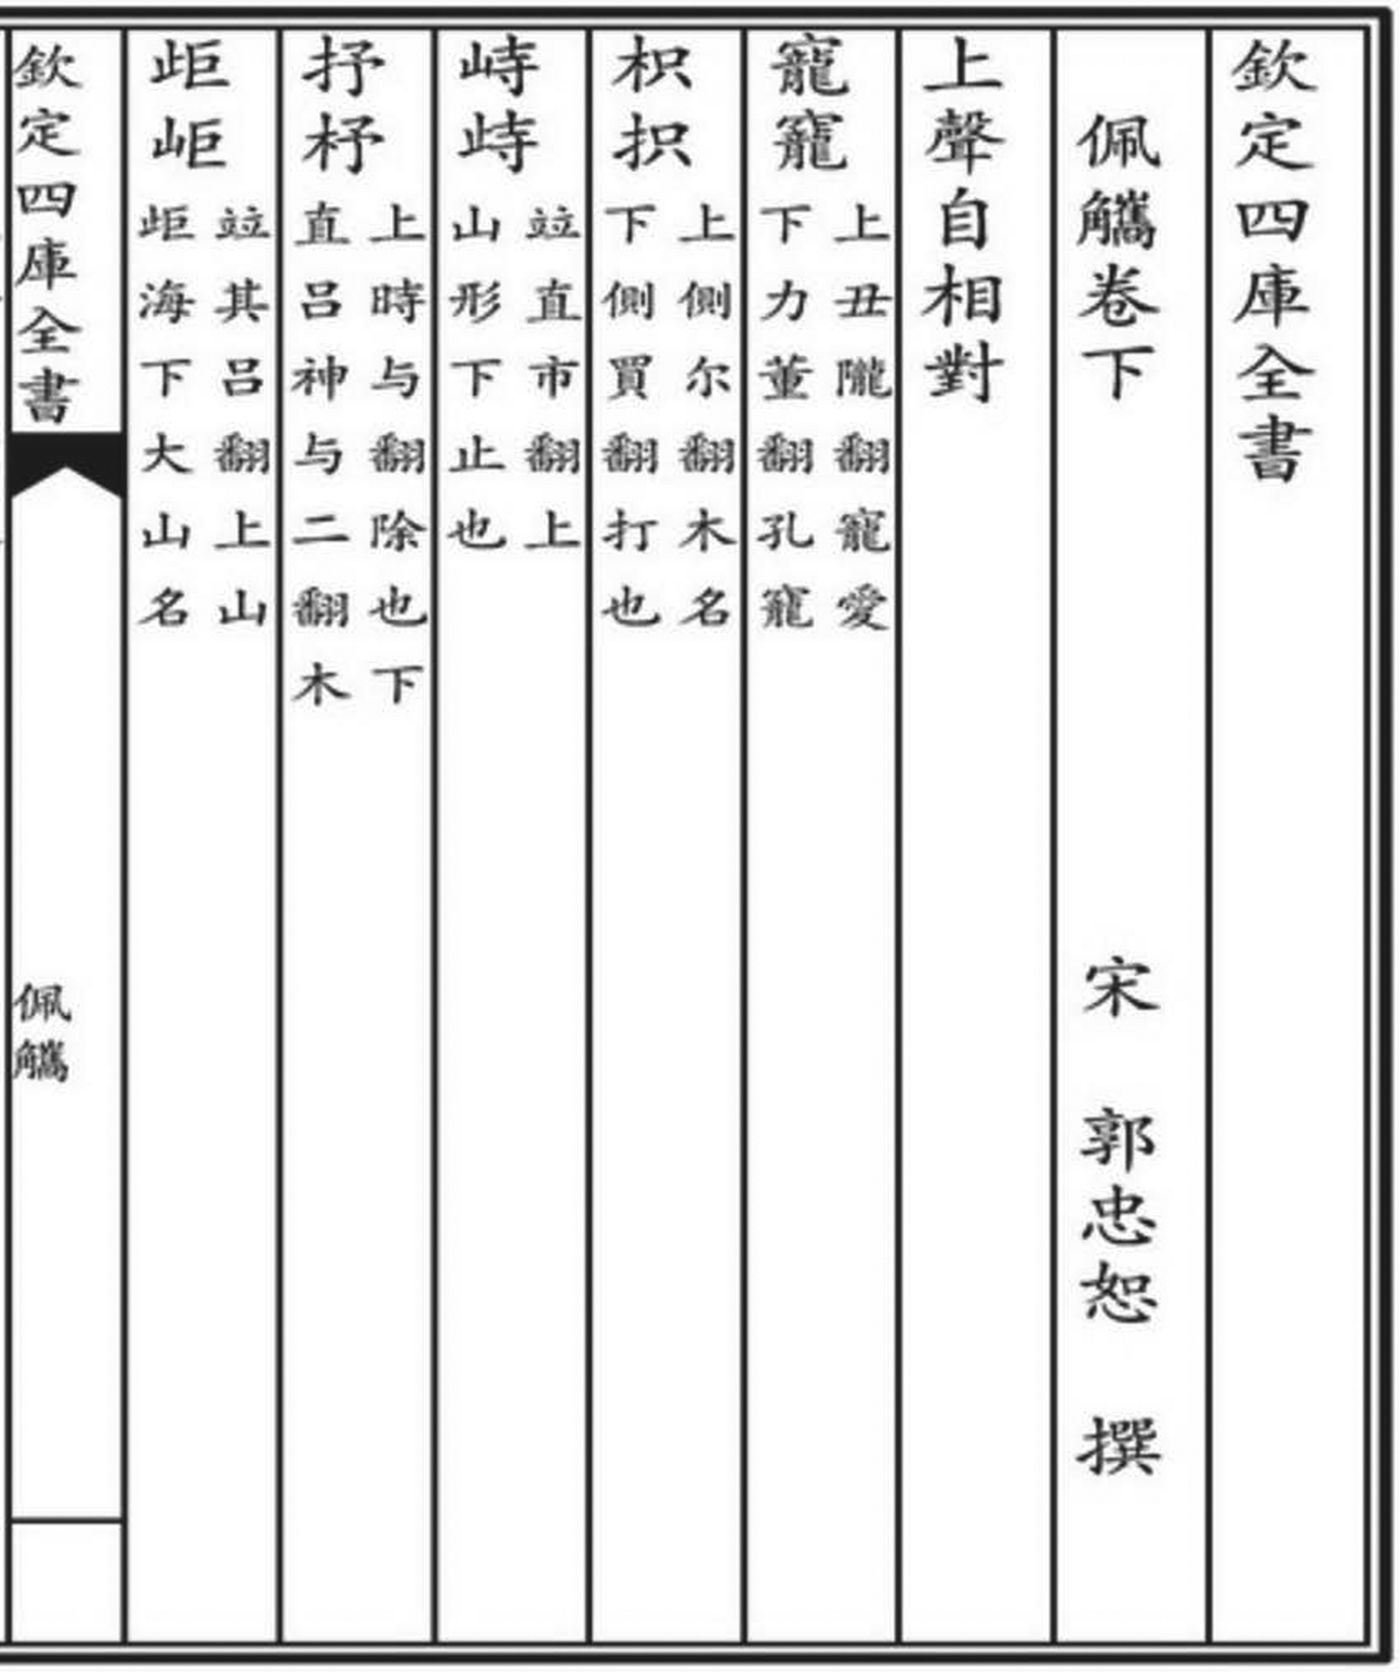 欽定四庫全書
佩觿卷下　宋　郭忠恕　撰
上聲自相對
寵竉
上丑隴翻寵愛
下力董翻孔竉
枳抧
上側尔翻木名
下側買翻打也
峙歭
竝直市翻上
山形下止也
抒杼
上時与翻除也下
直呂神与二翻木
歫岠
竝其呂翻上山
歫海下大山名
欽定四庫全書
佩觿